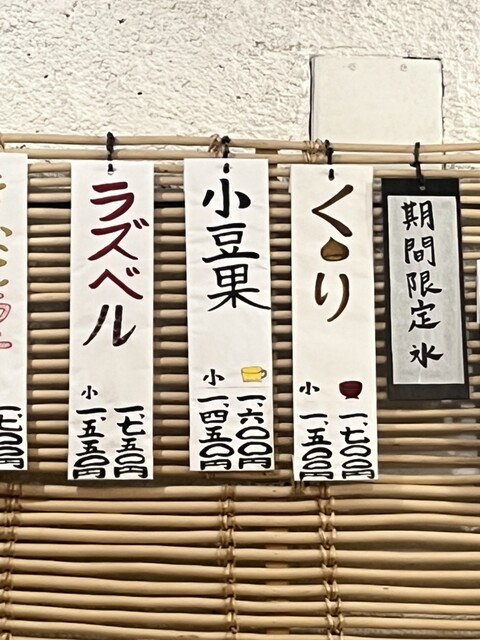 期間限定氷
くり
一、七〇〇円
小
一、五〇〇円
小豆果
一、六〇〇円
小
一四五〇円
ラズベル
一、七五〇円
小
一、五五〇円
一、七〇〇円